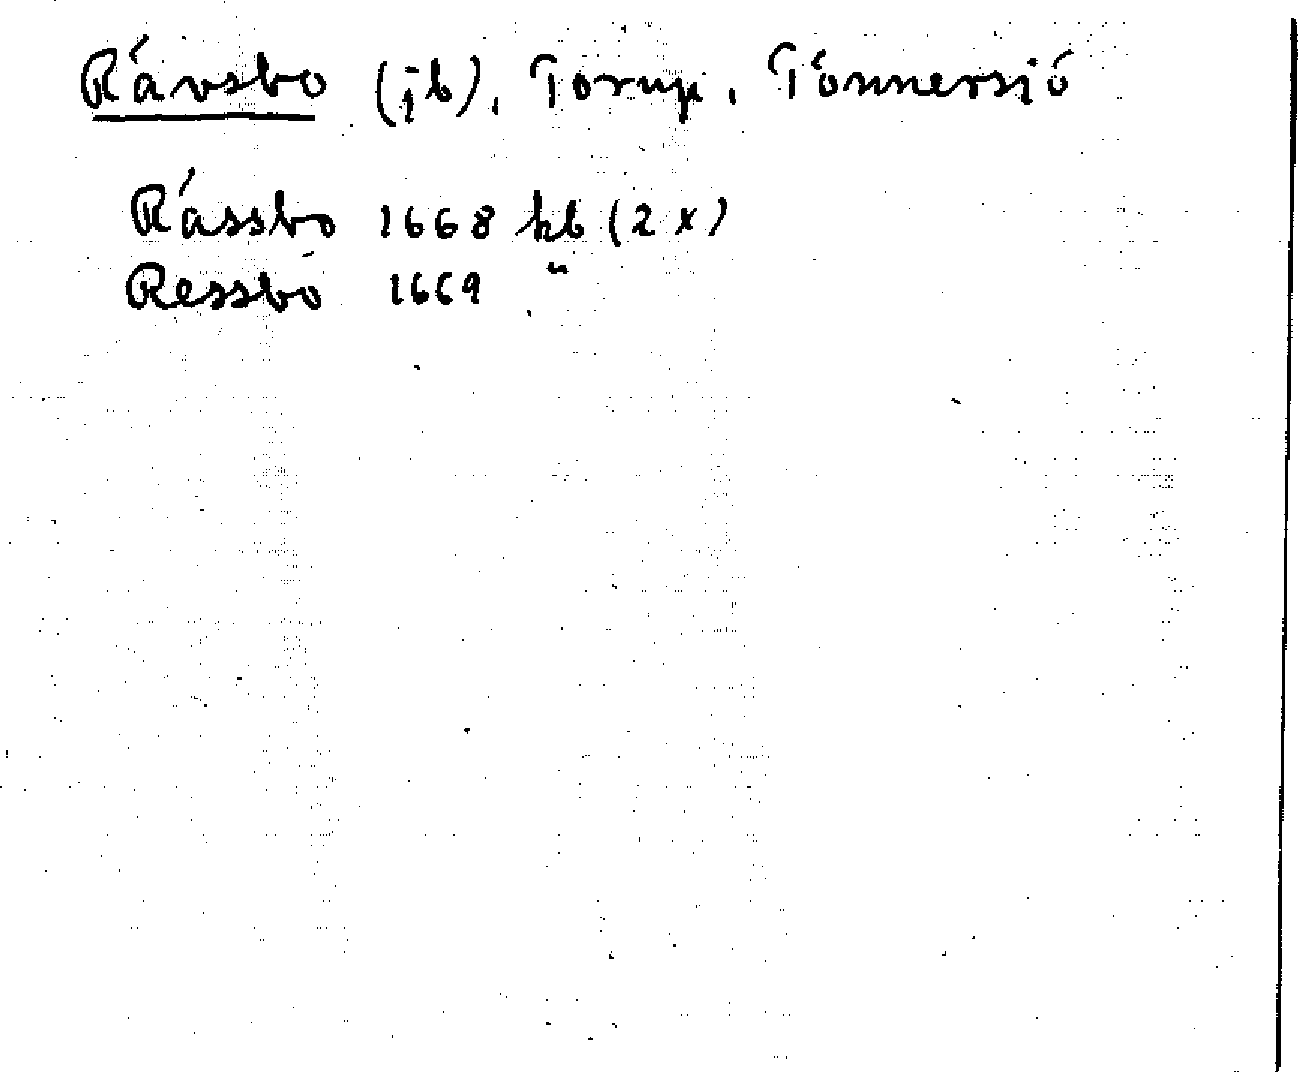 Rävsbo (jb), Torup, Tönnersjö
Rässbo 1668 kb (2 x)
Ressbo 1669 "